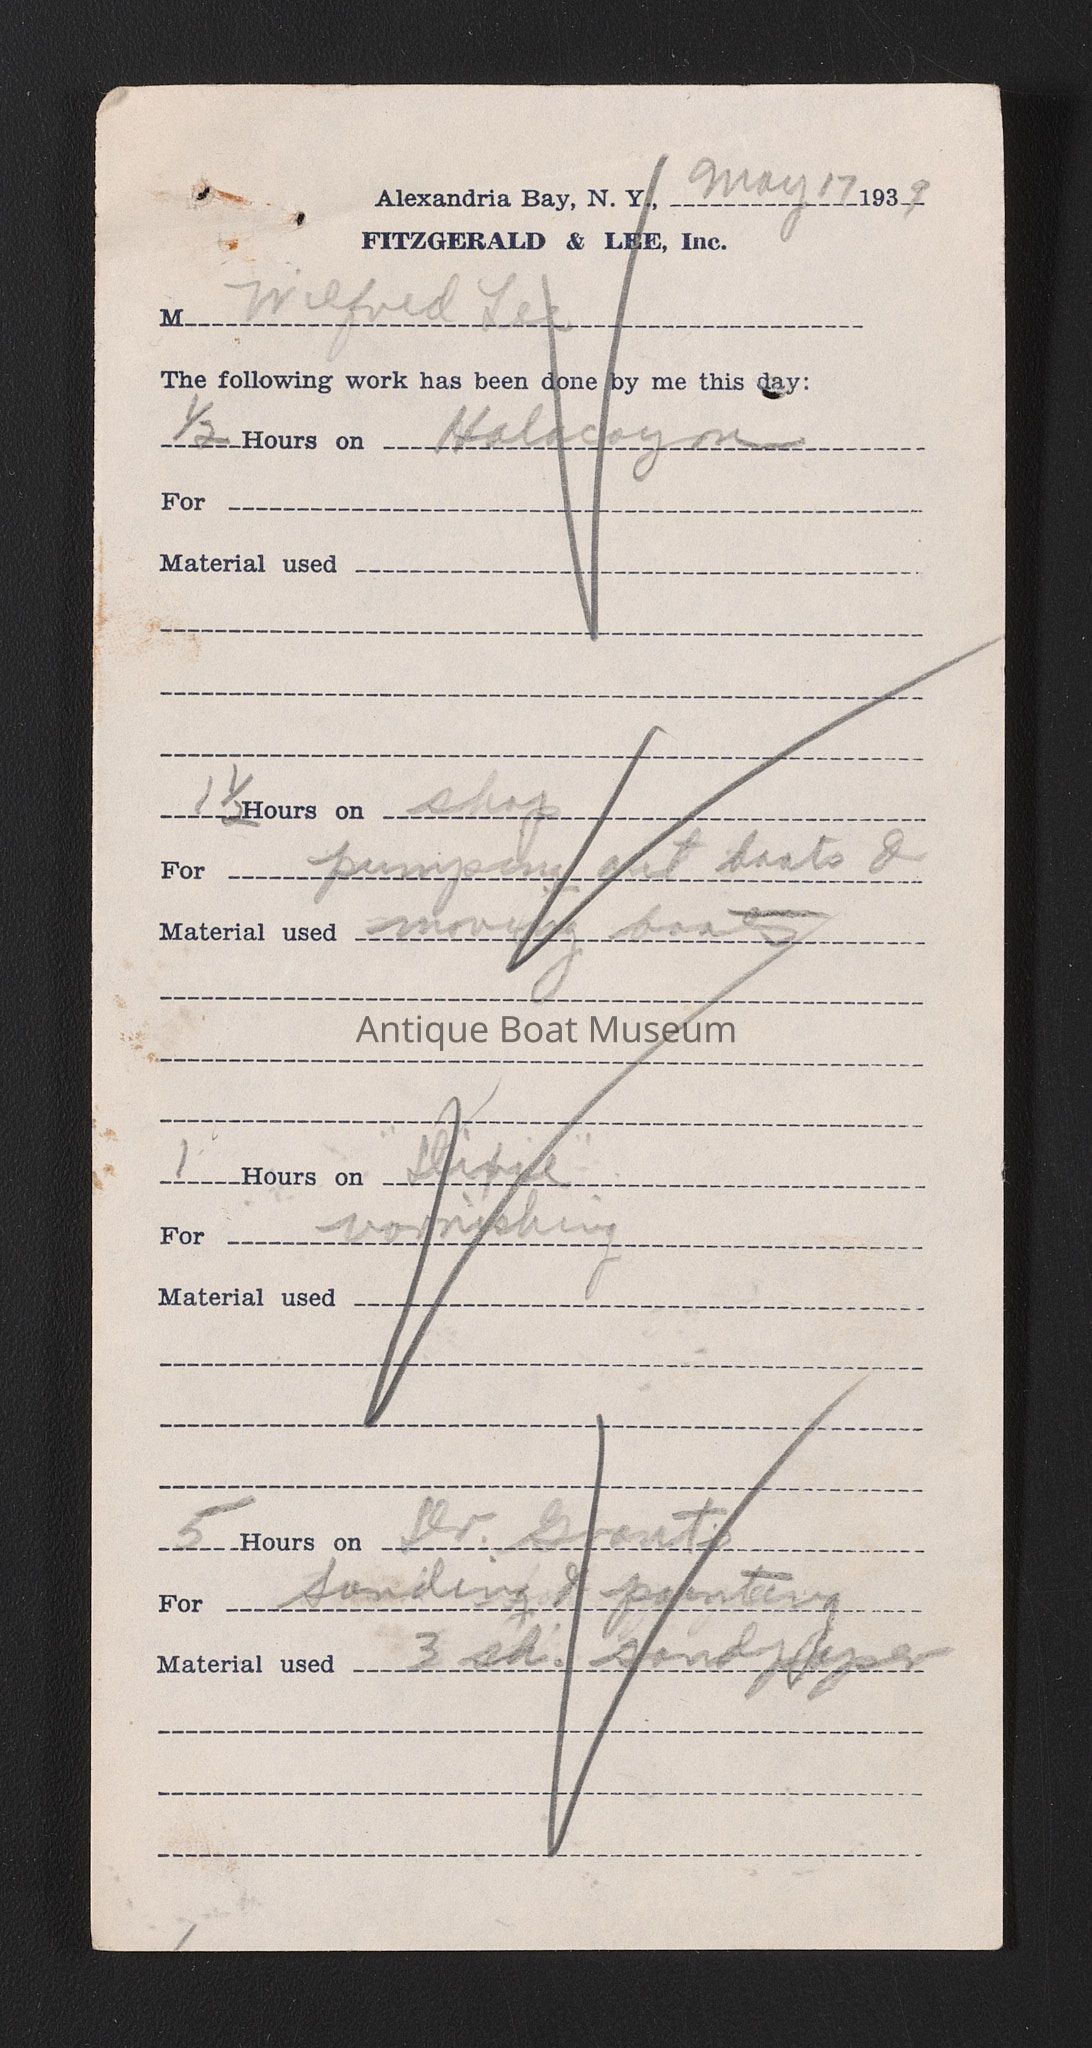 Alexandria Bay, N. Y., May 17 1939
FITZGERALD & LEE, Inc.
M Wilfred Lee
The following work has been done by me this day:
1/2 Hours on
For
Material used
1 1/2 Hours on shop
For pumping out boats &
Material used moving boats
Antique Boat Museum
1 Hours on "Dixie"
For varnishing
Material used
5 Hours on Dr. Grants
For Sanding & painting
Material used 3 sh. sandpaper